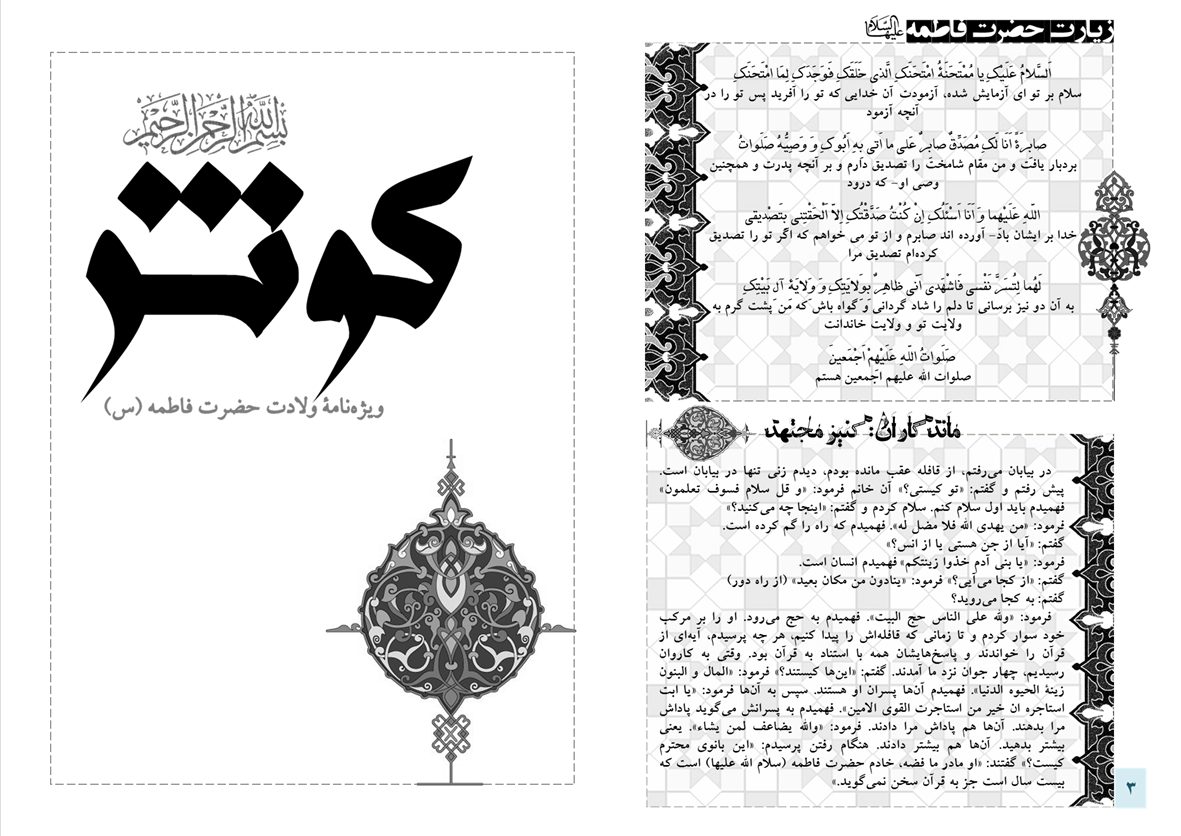 زیارت حضرت فاطمه علیها السلام
اَلسَّلامُ عَلَیْکِ یا مُمْتَحَنَةُ امْتَحَنَکِ الَّذی خَلَقَکِ فَوَجَدَکِ لِمَا امْتَحَنَکِ
سلام بر تو ای آزمایش شده، آزمودت آن خدایی که تو را آفرید پس تو را در
آنچه آزمود
صابِرَةً اَنَا لَکِ مُصَدِّقٌ صابِرٌ عَلی ما اَتی بِهِ اَبُوکِ وَ وَصِیُّهُ صَلَواتُ
بردبار یافت و من مقام شامخت را تصدیق دارم و بر آنچه پدرت و همچنین
وصی او- که درود
اللَّهِ عَلَیْهِما وَ اَنَا اَسْئَلُکِ اِنْ کُنْتُ صَدَّقْتُکِ اِلاَّ اَلْحَقْتِنی بِتَصْدیقی
خدا بر ایشان باد- آورده اند صابرم و از تو می خواهم که اگر تو را تصدیق
کرده‌ام تصدیق مرا
لَهُما لِتُسَرَّ نَفْسی فَاشْهَدی اَنّی ظاهِرٌ بِوَلایَتِکِ وَ وِلایَةِ آلِ بَیْتِکِ
به آن دو نیز برسانی تا دلم را شاد گردانی و گواه باش که من پشت گرم به
ولایت تو و ولایت خاندانت
صَلَواتُ اللَّهِ عَلَیْهِمْ اَجْمَعینَ
صلوات الله علیهم اجمعین هستم
ماندگاران: کنیز مجتهد
در بیابان می‌رفتم، از قافله عقب مانده بودم، دیدم زنی تنها در بیابان است.
پیش رفتم و گفتم: «تو کیستی؟» آن خانم فرمود: «و قل سلام فسوف تعلمون»
فهمیدم باید اول سلام کنم. سلام کردم و گفتم: «اینجا چه می‌کنید؟»
فرمود: «من یهدی الله فلا مضل له». فهمیدم که راه را گم کرده است.
گفتم: «آیا از جن هستی یا از انس؟»
فرمود: «یا بنی آدم خذوا زینتکم» فهمیدم انسان است.
گفتم: «از کجا می‌آیی؟» فرمود: «ینادون من مکان بعید» (از راه دور)
گفتم: به کجا می‌روید؟
فرمود: «ولله علی الناس حج البیت». فهمیدم به حج می‌رود. او را بر مرکب
خود سوار کردم و تا زمانی که قافله‌اش را پیدا کنیم، هر چه پرسیدم، آیه‌ای از
قرآن را خواندند و پاسخ‌هایشان همه با استناد به قرآن بود. وقتی به کاروان
رسیدیم، چهار جوان نزد ما آمدند. گفتم: «این‌ها کیستند؟» فرمود: «المال و البنون
زینة الحیوه الدنیا». فهمیدم آن‌ها پسران او هستند. سپس به آن‌ها فرمود: «یا ابت
استاجره ان خیر من استاجرت القوی الامین». فهمیدم به پسرانش می‌گوید پاداش
مرا بدهند. آن‌ها هم پاداش مرا دادند. فرمود: «والله یضاعف لمن یشاء». یعنی
بیشتر بدهید. آن‌ها هم بیشتر دادند. هنگام رفتن پرسیدم: «این بانوی محترم
کیست؟» گفتند: «او مادر ما فضه، خادم حضرت فاطمه (سلام الله علیها) است که
بیست سال است جز به قرآن سخن نمی‌گوید.»
۳
بسم الله الرحمن الرحیم
کوثر
ویژه‌نامهٔ ولادت حضرت فاطمه (س)